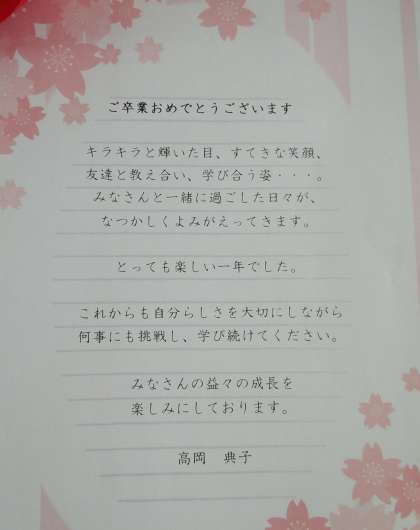 ご卒業おめでとうございます
キラキラと輝いた目、すてきな笑顔、
友達と教え合い、学び合う姿・・・。
みなさんと一緒に過ごした日々が、
なつかしくよみがえってきます。
とっても楽しい一年でした。
これからも自分らしさを大切にしながら
何事にも挑戦し、学び続けてください。
みなさんの益々の成長を
楽しみにしております。
高岡　典子